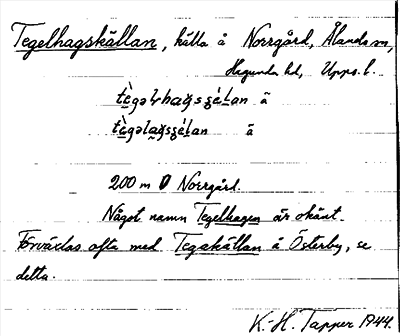 Tegelhagskällan, källa å Norrgård, Ålands sn,
Hagunda hd, Upps. l.
200 m V Norrgård.
Något namn Tegelhagen är okänt.
Förväxlas ofta med Tegakällan å Österby, se
detta.
K.-H. Tapper 1944.